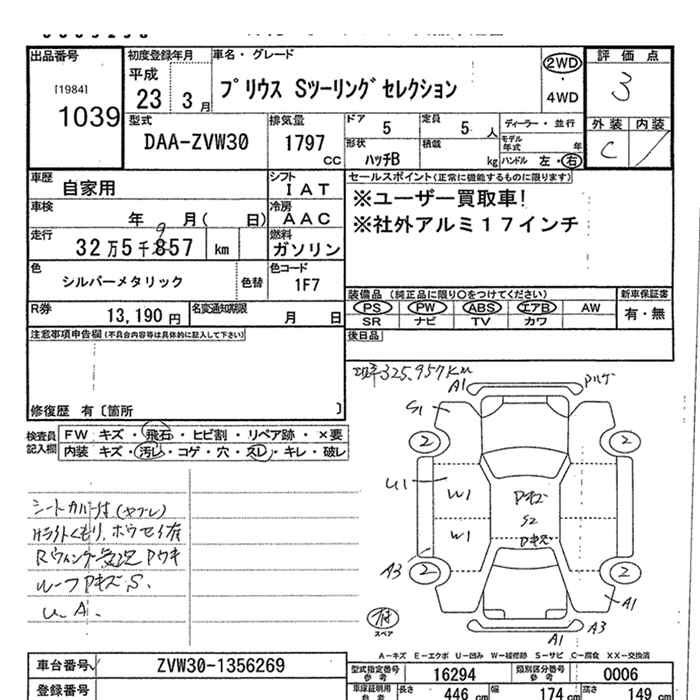 出品番号
[1984]
1039
初度登録年月
平成
23 3月
車名・グレード
プリウス Sツーリングセレクション
2WD
・
4WD
評価点
3
外装 内装
C
型式
DAA-ZVW30
排気量
1797
CC
ドア
5
定員
5 人
ディーラー・並行
形状
ハッチB
積載
kg
モデル年式
年
ハンドル 左・右
車歴
自家用
シフト
IAT
車検
年 月( 日)
冷房
AAC
走行
32万5千857
9
km
燃料
ガソリン
色
シルバーメタリック
色替
色コード
1F7
R券
13,190 円
名変通知期限
月 日
セールスポイント(正常に機能するものに限ります)
※ユーザー買取車!
※社外アルミ17インチ
装備品 (純正品に限り○をつけてください)
PS PW ABS エアB AW
SR ナビ TV カワ
新車保証書
有・無
後日品
注意事項申告欄(不具合内容等は具体的に記入して下さい)
修復歴 有〔箇所 〕
検査員
記入欄
FW キズ・飛石・ヒビ割・リペア跡・×要
内装 キズ・汚レ・コゲ・穴・スレ・キレ・破レ
シートカバー付(ヤブレ)
ルーフPキズ S.
U. A.
325,957KM
A1
G1
2
2
U1
W1
Pキズ
S2
W1
Pキズ
A3
2
2
A1
付
スペア
A1
A3
A-キズ E-エクボ U-凹み W-補修跡 S-サビ C-腐食 XX-交換済
車台番号
ZVW30-1356269
型式指定番号
参考
16294
類別区分番号
参考
0006
登録番号
車庫証明用
参考
長さ
446 cm
幅
174 cm
高さ
149 cm